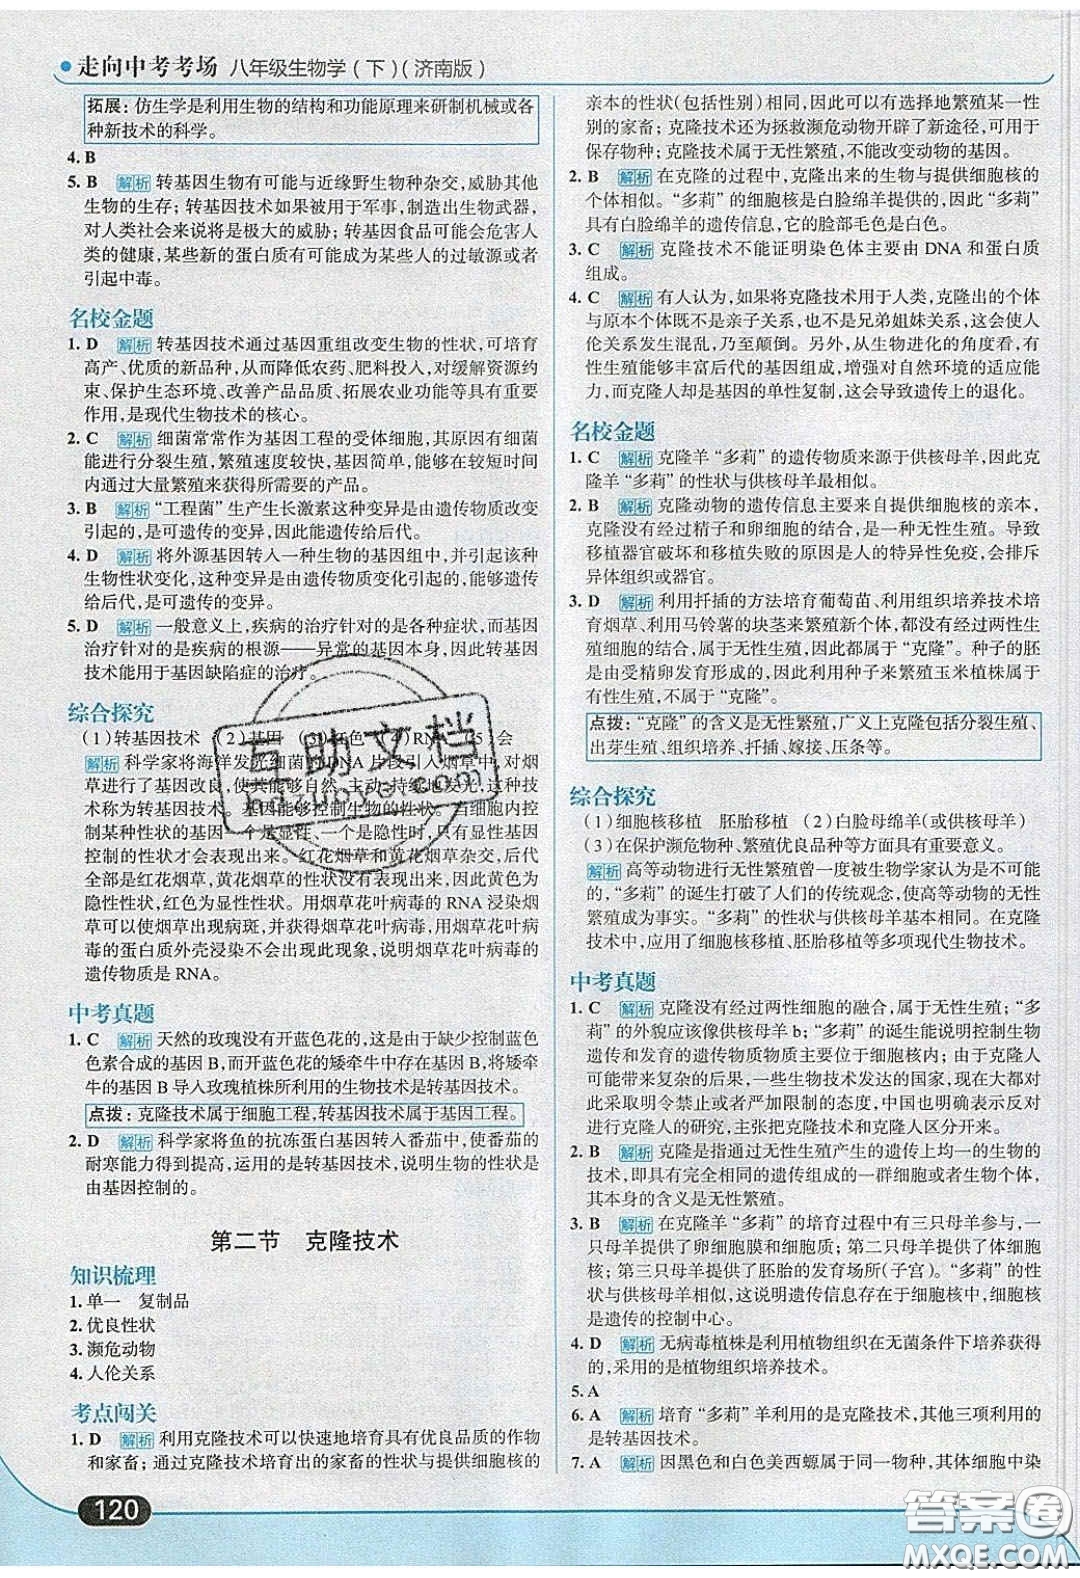 走向中考考场 八年级生物学（下）（济南版）
拓展：仿生学是利用生物的结构和功能原理来研制机械或各
种新技术的科学。
4. B
5. B 解析 转基因生物有可能与近缘野生物种杂交，威胁其他
生物的生存；转基因技术如果被用于军事，制造出生物武器，
对人类社会来说将是极大的威胁；转基因食品可能会危害人
类的健康，某些新的蛋白质有可能成为某些人的过敏源或者
引起中毒。
名校金题
1. D 解析 转基因技术通过基因重组改变生物的性状，可培育
高产、优质的新品种，从而降低农药、肥料投入，对缓解资源约
束、保护生态环境、改善产品品质、拓展农业功能等具有重要
作用，是现代生物技术的核心。
2. C 解析 细菌常常作为基因工程的受体细胞，其原因有细菌
能进行分裂生殖，繁殖速度较快，基因简单，能够在较短时间
内通过大量繁殖来获得所需要的产品。
3. B 解析 “工程菌”生产生长激素这种变异是由遗传物质改变
引起的，是可遗传的变异，因此能遗传给后代。
4. D 解析 将外源基因转入一种生物的基因组中，并引起该种
生物性状变化，这种变异是由遗传物质变化引起的，能够遗传
给后代，是可遗传的变异。
5. D 解析 一般意义上，疾病的治疗针对的是各种症状，而基因
治疗针对的是疾病的根源——异常的基因本身，因此转基因
技术能用于基因缺陷症的治疗。
综合探究
（1）转基因技术 （2）基因 （3）红色 （4）RNA （5）会
解析 科学家将海洋发光细菌的DNA片段引入烟草中，对烟
草进行了基因改良，使其能够自然、主动、持续地发光，这种技
术称为转基因技术。基因能够控制生物的性状。当细胞内控
制某种性状的基因一个是显性、一个是隐性时，只有显性基因
控制的性状才会表现出来。红花烟草和黄花烟草杂交，后代
全部是红花烟草，黄花烟草的性状没有表现出来，因此黄色为
隐性性状，红色为显性性状。用烟草花叶病毒的RNA浸染烟
草可以使烟草出现病斑，并获得烟草花叶病毒，用烟草花叶病
毒的蛋白质外壳浸染不会出现此现象，说明烟草花叶病毒的
遗传物质是RNA。
中考真题
1. C 解析 天然的玫瑰没有开蓝色花的，这是由于缺少控制蓝色
色素合成的基因B，而开蓝色花的矮牵牛中存在基因B，将矮牵
牛的基因B导入玫瑰植株所利用的生物技术是转基因技术。
点拨：克隆技术属于细胞工程，转基因技术属于基因工程。
2. D 解析 科学家将鱼的抗冻蛋白基因转入番茄中，使番茄的
耐寒能力得到提高，运用的是转基因技术，说明生物的性状是
由基因控制的。
第二节 克隆技术
知识梳理
1. 单一 复制品
2. 优良性状
3. 濒危动物
4. 人伦关系
考点闯关
1. D 解析 利用克隆技术可以快速地培育具有优良品质的作物
和家畜；通过克隆技术培育出的家畜的性状与提供细胞核的
120
亲本的性状（包括性别）相同，因此可以有选择地繁殖某一性
别的家畜；克隆技术还为拯救濒危动物开辟了新途径，可用于
保存物种；克隆技术属于无性繁殖，不能改变动物的基因。
2. B 解析 在克隆的过程中，克隆出来的生物与提供细胞核的
个体相似。“多莉”的细胞核是白脸绵羊提供的，因此“多莉”
具有白脸绵羊的遗传信息，它的脸部毛色是白色。
3. C 解析 克隆技术不能证明染色体主要由DNA和蛋白质
组成。
4. C 解析 有人认为，如果将克隆技术用于人类，克隆出的个体
与原本个体既不是亲子关系，也不是兄弟姐妹关系，这会使人
伦关系发生混乱，乃至颠倒。另外，从生物进化的角度看，有
性生殖能够丰富后代的基因组成，增强对自然环境的适应能
力，而克隆人却是基因的单性复制，这会导致遗传上的退化。
名校金题
1. C 解析 克隆羊“多莉”的遗传物质来源于供核母羊，因此克
隆羊“多莉”的性状与供核母羊最相似。
2. B 解析 克隆动物的遗传信息主要来自提供细胞核的亲本，
克隆没有经过精子和卵细胞的结合，是一种无性生殖。导致
移植器官破坏和移植失败的原因是人的特异性免疫，会排斥
异体组织或器官。
3. D 解析 利用扦插的方法培育葡萄苗、利用组织培养技术培
育烟草、利用马铃薯的块茎来繁殖新个体，都没有经过两性生
殖细胞的结合，属于无性生殖，因此都属于“克隆”。种子的胚
是由受精卵发育形成的，因此利用种子来繁殖玉米植株属于
有性生殖，不属于“克隆”。
点拨：“克隆”的含义是无性繁殖，广义上克隆包括分裂生殖、
出芽生殖、组织培养、扦插、嫁接、压条等。
综合探究
（1）细胞核移植 胚胎移植 （2）白脸母绵羊（或供核母羊）
（3）在保护濒危物种、繁殖优良品种等方面具有重要意义。
解析 高等动物进行无性繁殖曾一度被生物学家认为是不可能
的，“多莉”的诞生打破了人们的传统观念，使高等动物的无性
繁殖成为事实。“多莉”的性状与供核母羊基本相同。在克隆
技术中，应用了细胞核移植、胚胎移植等多项现代生物技术。
中考真题
1. C 解析 克隆没有经过两性细胞的融合，属于无性生殖；“多
莉”的外貌应该像供核母羊b；“多莉”的诞生能说明控制生物
遗传和发育的遗传物质物质主要位于细胞核内；由于克隆人
可能带来复杂的后果，一些生物技术发达的国家，现在大都对
此采取明令禁止或者严加限制的态度，中国也明确表示反对
进行克隆人的研究，主张把克隆技术和克隆人区分开来。
2. B 解析 克隆是指通过无性生殖产生的遗传上均一的生物的
技术，即具有完全相同的遗传组成的一群细胞或者生物个体，
其本身的含义是无性繁殖。
3. B 解析 在克隆羊“多莉”的培育过程中有三只母羊参与，一
只母羊提供了卵细胞膜和细胞质；第二只母羊提供了体细胞
核；第三只母羊提供了胚胎的发育场所（子宫）。“多莉”的性
状与供核母羊相近，这说明遗传信息存在于细胞核中，细胞核
是遗传的控制中心。
4. D 解析 无病毒植株是利用植物组织在无菌条件下培养获得
的，采用的是植物组织培养技术。
5. A
6. A 解析 培育“多莉”羊利用的是克隆技术，其他三项利用的
是转基因技术。
7. A 解析 因黑色和白色美西螈属于同一物种，其体细胞中染
互助文档
hdzuoye.com
答案圈
MXQE.COM